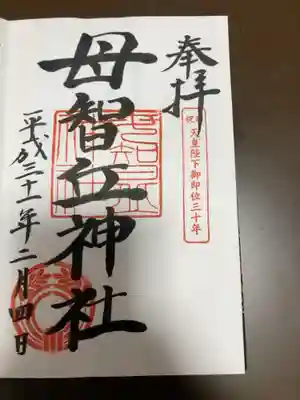 奉拝
祝 天皇陛下御即位三十年
母智丘神社
平成三十一年二月四日